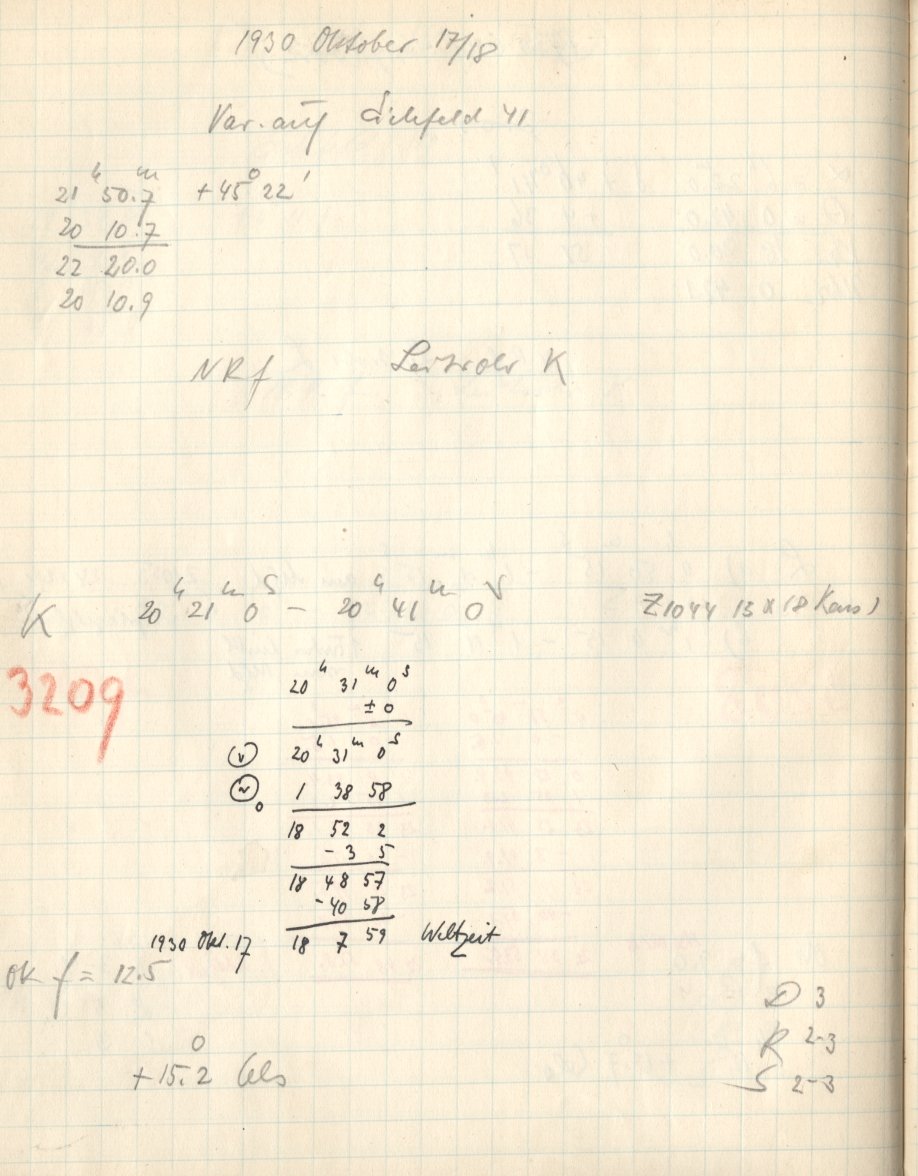 1930 Oktober 17/18
Var. auf Eichfeld 41
21ʰ 50.7ᵐ +45° 22'
20 10.7
22 20.0
20 10.9
NRf Leitrohr K
K 20ʰ 21ᵐ 0ˢ – 20ʰ 41ᵐ 0ˢ Z1044 13 x 18
3209
20ʰ 31ᵐ 0ˢ
± 0
20ʰ 31ᵐ 0ˢ
1 38 58
18 52 2
- 3 5
18 48 57
- 40 58
1930 Okt. 17 18 7 59 Weltzeit
OK f = 12.5
D 3
R 2-3
+15.°2 Cels
S 2-3